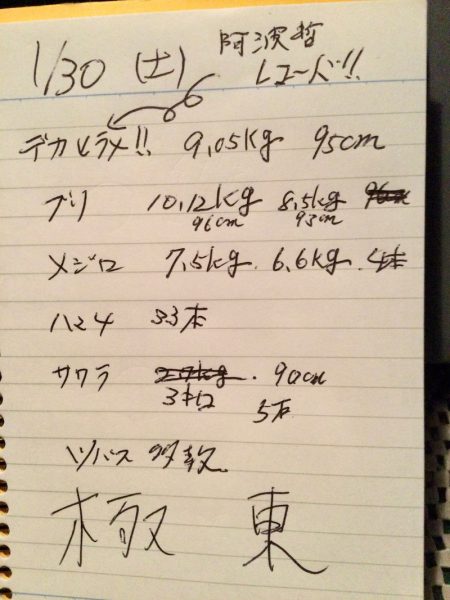 1/30 (土) 阿波哲
レコード!!
デカヒラメ!! 9,05kg 95cm
ブリ 10,12kg 8,5kg
96cm 93cm
メジロ 7,5kg. 6,6kg. 4本
ハマチ 33本
サワラ 90cm
5本
ツバス 多数
極 東